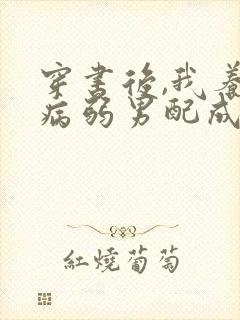 穿書後,我養
病弱男配成
紅燒葡萄